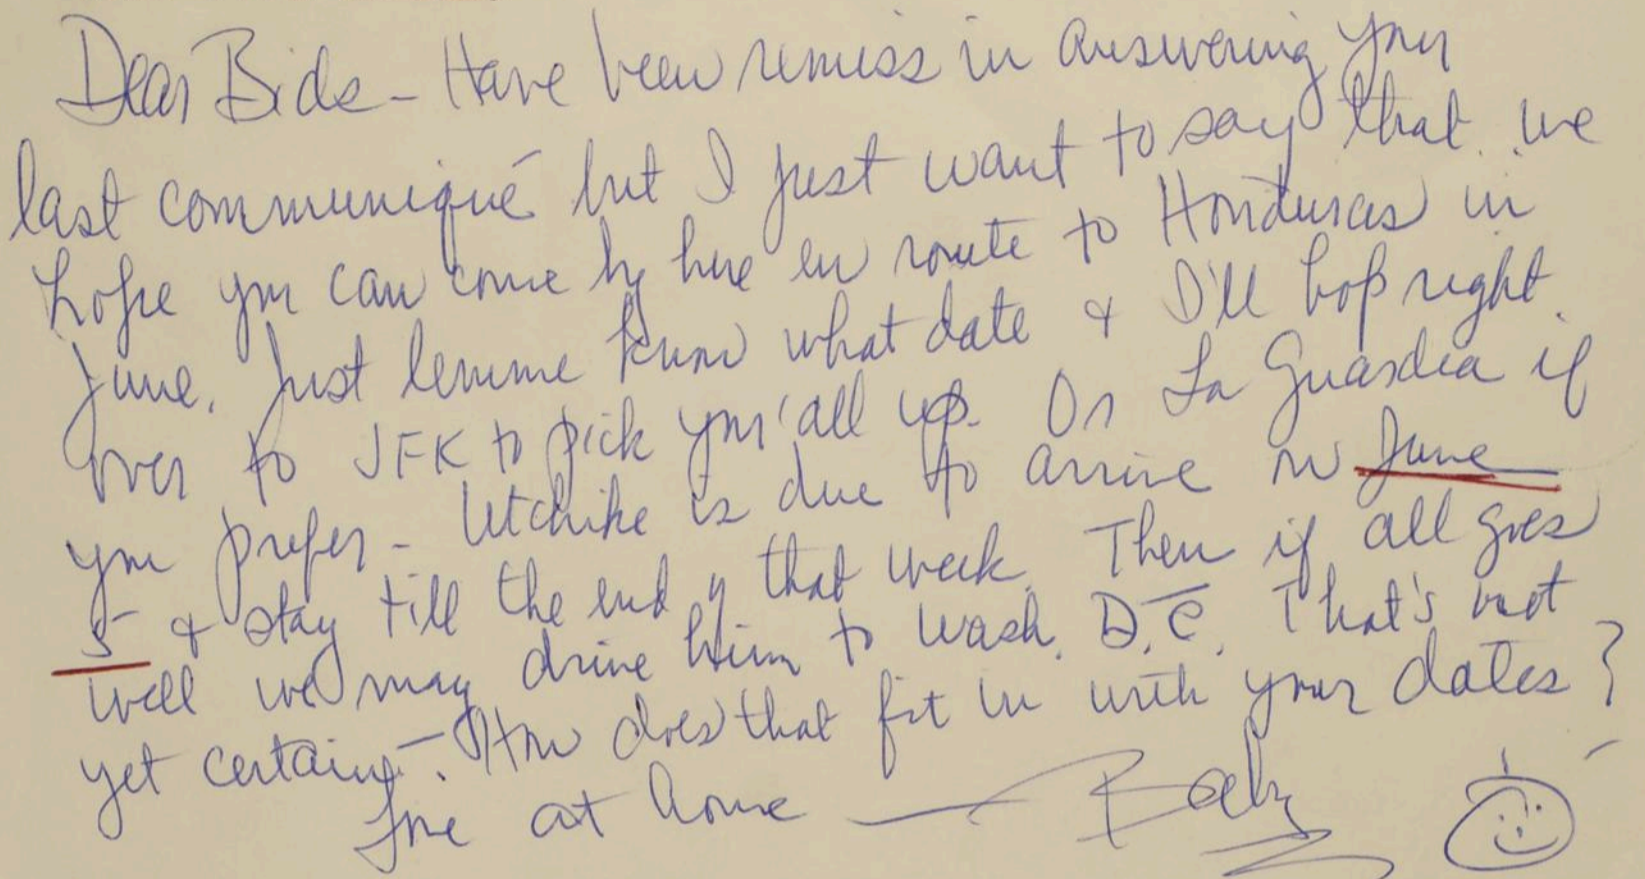 Dear Bids - Have been remiss in answering your
last communiqué but I just want to say that we
hope you can come by here en route to Honduras in
June. Just lemme know what date & I'll hop right
over to JFK to pick you'all up. Or La Guardia if
you prefer - is due to arrive on June
5 & stay till the end of that week. Then if all goes
well we may drive him to Wash. D.C. That's not
yet certain. How does that fit in with your dates?
Love at home - Baby